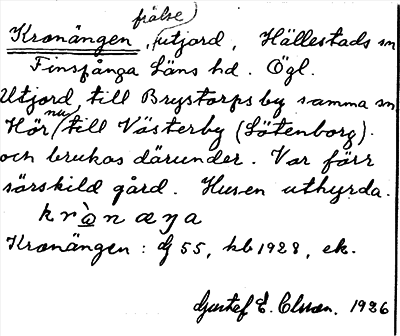 frälse
Kronängen, utjord, Hällestads sn
Finspånga Läns hd. Ögl.
Utjord till Brystorps by samma sn
Hör nu till Västerby (Sötenborg).
och brukas därunder. Var förr
särskild gård. Husen uthyrda.
krònæŋa
Kronängen: G 55, kb 1928, ek.
Gustaf E. Olsson. 1936